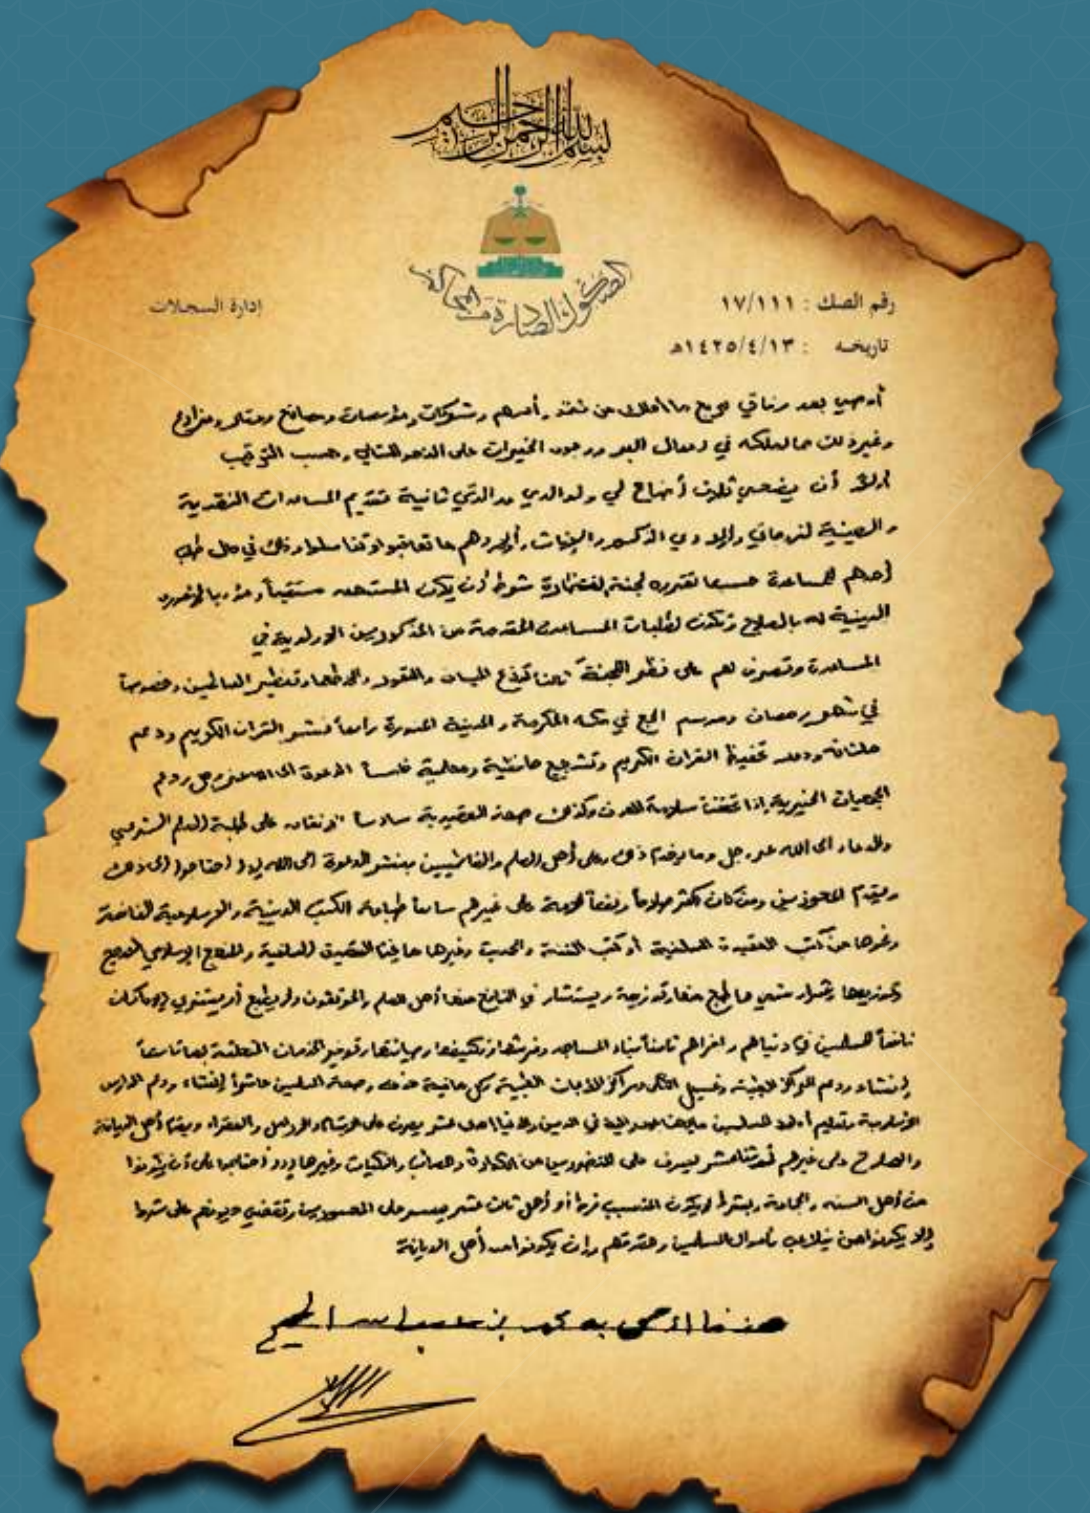 بسم الله الرحمن الرحيم
الصكوك الصادرة من
إدارة السجلات
رقم الصك : ١٧/١١١
تاريخه : ١٤٢٥/٤/١٣هـ
أوصي بعد وفاتي بجميع ما أملك من نقد وأسهم وشركات ومؤسسات ومصانع ومتاجر ومزارع
وغير ذلك مما أملكه في أعمال البر ووجوه الخيرات على النحو التالي وحسب الترتيب
أولاً أن يضحى ثلاث أضاحي لي ولوالدي ووالدتي ثانية تقديم المساعدات النقدية
والعينية لزوجاتي وأولادي الذكور والبنات وأولادهم ما تعاقبوا وتناسلوا وذلك في حال طلب
أحدهم للمساعدة حسبما تقرره لجنة شرط أن يكون المستحق مستقيماً
الدينية له بالصلاح وتكون لطلبات المساعدة المقدمة من المذكورين الأولوية في
المساعدة وتصرف لهم على نظر اللجنة توزيع المياه والنقود والأطعمة وتفطير الصائمين وخصوصاً
في شهر رمضان وموسم الحج في مكة المكرمة والمدينة المنورة رابعاً نشر القرآن الكريم ودعم
حلقاته ودور تحفيظ القرآن الكريم وتشجيع حافظيه ومعلميه خامساً الدعوة إلى الله عز وجل ودعم
الجمعيات الخيرية إذا تحققت سلامة الهدف وكذلك صحة العقيدة سادساً الإنفاق على طلبة العلم الشرعي
والدعاة إلى الله عز وجل وما يخدم ذلك وعلى أهل العلم والقائمين بنشر الدعوة إلى الله إذا احتاجوا إلى ذلك
ويقدم ومن كان أكثر ونفعاً للأمة على غيرهم سابعاً طباعة الكتب الدينية والإسلامية النافعة
وغيرها من كتب العقيدة السلفية أو كتب السنة والحديث وغيرها السلفية والمنهاج الإسلامي الصحيح
وتوزيعها وشراء شيء ما طبع منها وتوزيعه ويستشار في النافع منها أهل العلم والموثقون ولا يطبع أو يشترى إلا ما كان
نافعاً للمسلمين في دنياهم وأخراهم ثامناً بناء المساجد وفرشها وتكييفها وصيانتها وتوفير الخدمات المتعلقة بها تاسعاً
إنشاء ودعم المراكز الطبية وغسيل الكلى ومراكز الأبحاث الطبية وكل ما فيه خدمة وصحة المسلمين عاشراً إنشاء ودعم المدارس
الإسلامية وتعليم أولاد المسلمين في الدين والدنيا احد عشر يصرف على الأيتام والأرامل والفقراء ويقدم أهل الديانة
والصلاح على غيرهم ثاني عشر يصرف على المتضررين من الكوارث والمصائب والنكبات وغيرها إذا احتاجوا على أن يكونوا
من أهل السنة والجماعة ويشترط أن يكون المنتسب فرداً أو أهل ثالث عشر يصرف على المعسرين وتقضى ديونهم على شرط
ألا يكونوا ممن يتلاعب بأموال المسلمين وحقوقهم وأن يكونوا من أهل الديانة
هذا ما أوصى به بن